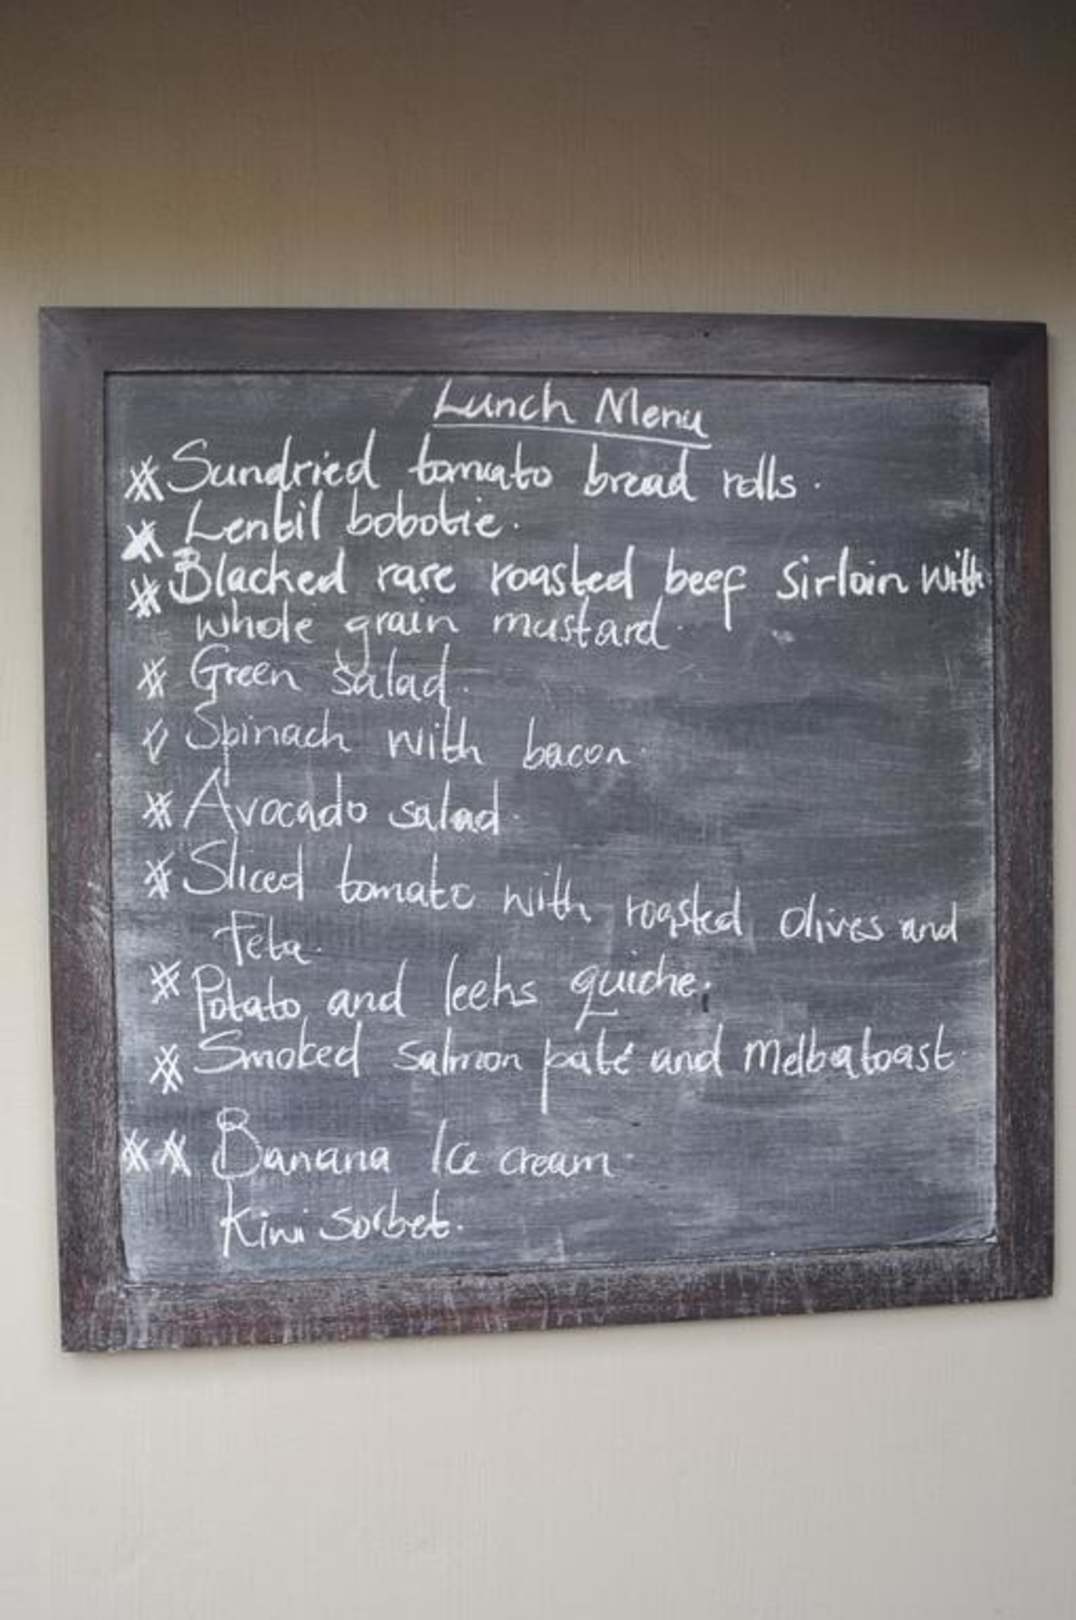 Lunch Menu
* Sundried tomato bread rolls.
* Lentil bobotie.
* Blacked rare roasted beef sirloin with
whole grain mustard.
* Green salad.
* Spinach with bacon.
* Avocado salad.
* Sliced tomato with roasted olives and
Feta.
* Potato and leeks quiche.
* Smoked salmon paté and Melbatoast.
** Banana Ice cream
Kiwi Sorbet.